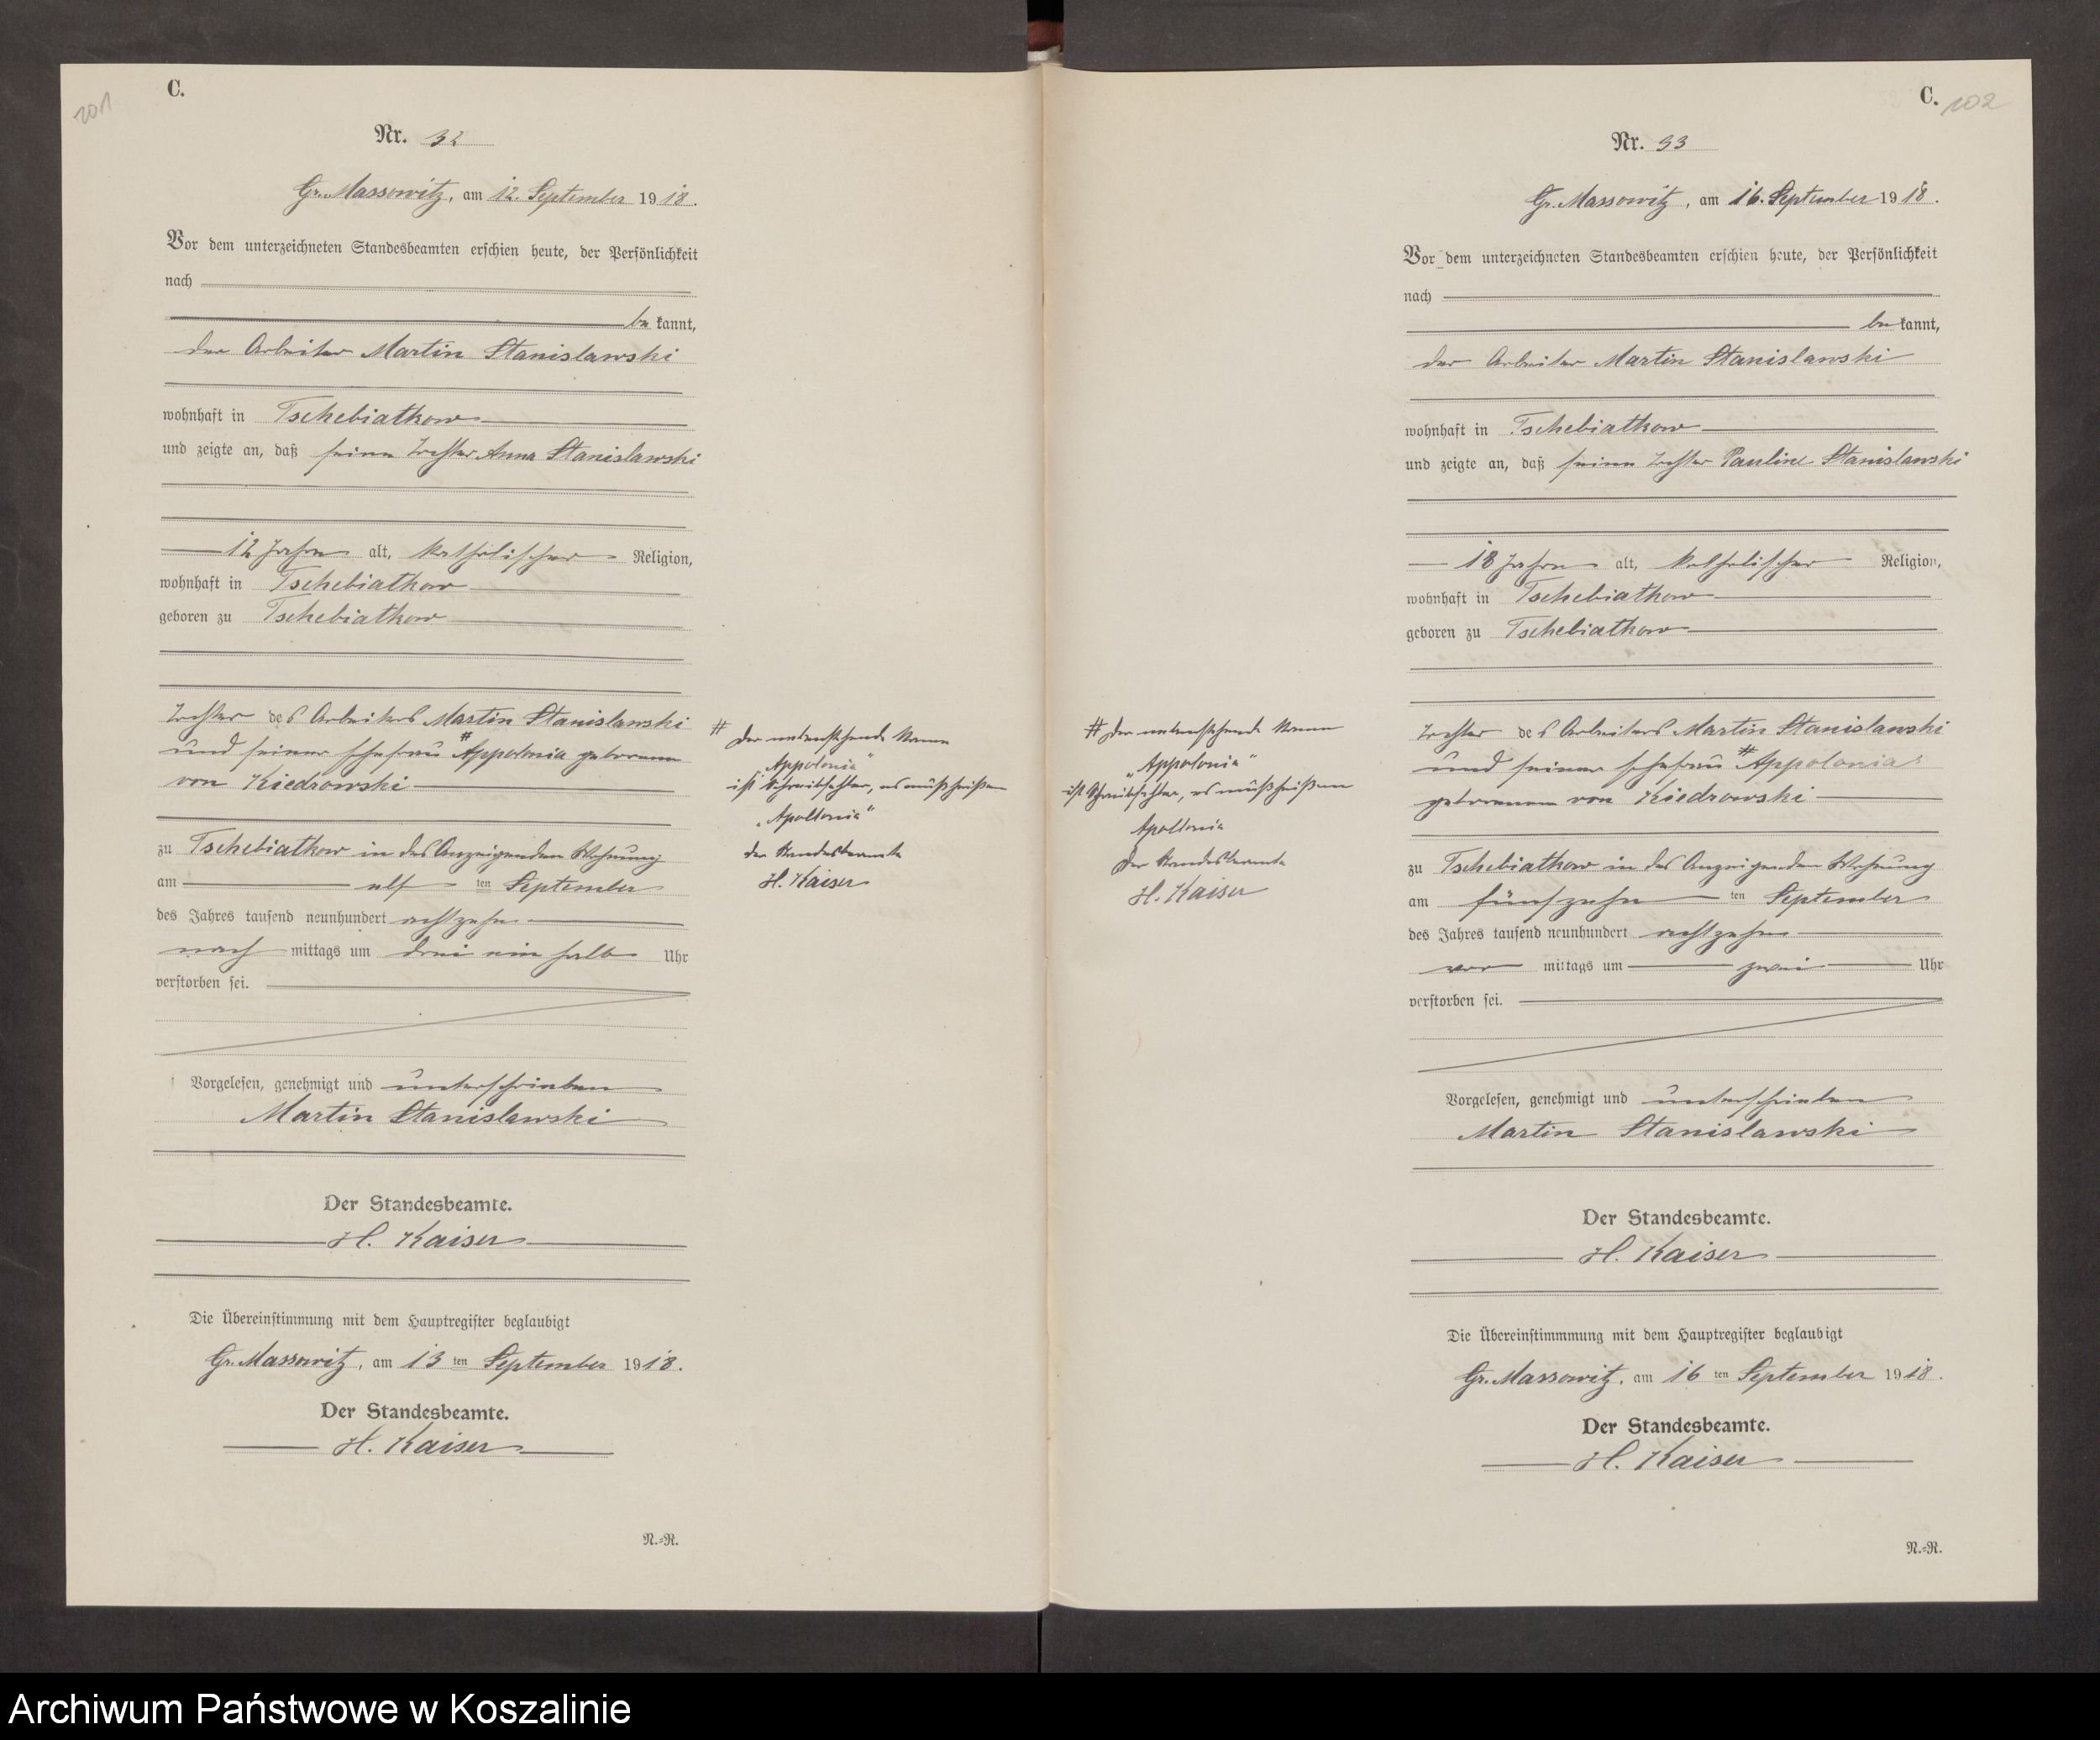 201
C.
Nr. 32
Gr. Massowitz, am 12. September 1918.
Vor dem unterzeichneten Standesbeamten erschien heute, der Persönlichkeit
nach
be kannt,
der Arbeiter Martin Stanislawski
wohnhaft in Tschebiatkow
und zeigte an, daß seine Tochter Anna Stanislawski
12 Jahre alt, katholischer Religion,
wohnhaft in Tschebiatkow
geboren zu Tschebiatkow
Tochter des Arbeiters Martin Stanislawski
und seiner Ehefrau # Appolonia geborene
von Kiedrowski
zu Tschebiatkow in des Anzeigenden Wohnung
am elf ten September
des Jahres tausend neunhundert achtzehn
nach mittags um drei ein halb Uhr
verstorben sei.
Vorgelesen, genehmigt und unterschrieben
Martin Stanislawski
Der Standesbeamte.
H. Kaiser
Die Übereinstimmung mit dem Hauptregister beglaubigt
Gr. Massowitz, am 13 ten September 1918.
Der Standesbeamte.
H. Kaiser
N.=R.
# Der nebenstehende Name
„Appolonia“
ist Schreibfehler, es muß heißen
„Apollonia“
der Standesbeamte
H. Kaiser
C. 202
Nr. 33
Gr. Massowitz, am 16. September 1918.
Vor dem unterzeichneten Standesbeamten erschien heute, der Persönlichkeit
nach
be kannt,
der Arbeiter Martin Stanislawski
wohnhaft in Tschebiatkow
und zeigte an, daß seine Tochter Pauline Stanislawski
18 Jahre alt, katholischer Religion,
wohnhaft in Tschebiatkow
geboren zu Tschebiatkow
Tochter des Arbeiters Martin Stanislawski
und seiner Ehefrau # Appolonia
geborenen von Kiedrowski
zu Tschebiatkow in des Anzeigenden Wohnung
am fünfzehn ten September
des Jahres tausend neunhundert achtzehn
vor mittags um zwei Uhr
verstorben sei.
Vorgelesen, genehmigt und unterschrieben
Martin Stanislawski
Der Standesbeamte.
H. Kaiser
Die Übereinstimmmung mit dem Hauptregister beglaubigt
Gr. Massowitz, am 16 ten September 1918.
Der Standesbeamte.
H. Kaiser
N.=R.
# Der nebenstehende Name
„Appolonia“
ist Schreibfehler, es muß heißen
Apollonia
Der Standesbeamte
H. Kaiser
Archiwum Państwowe w Koszalinie